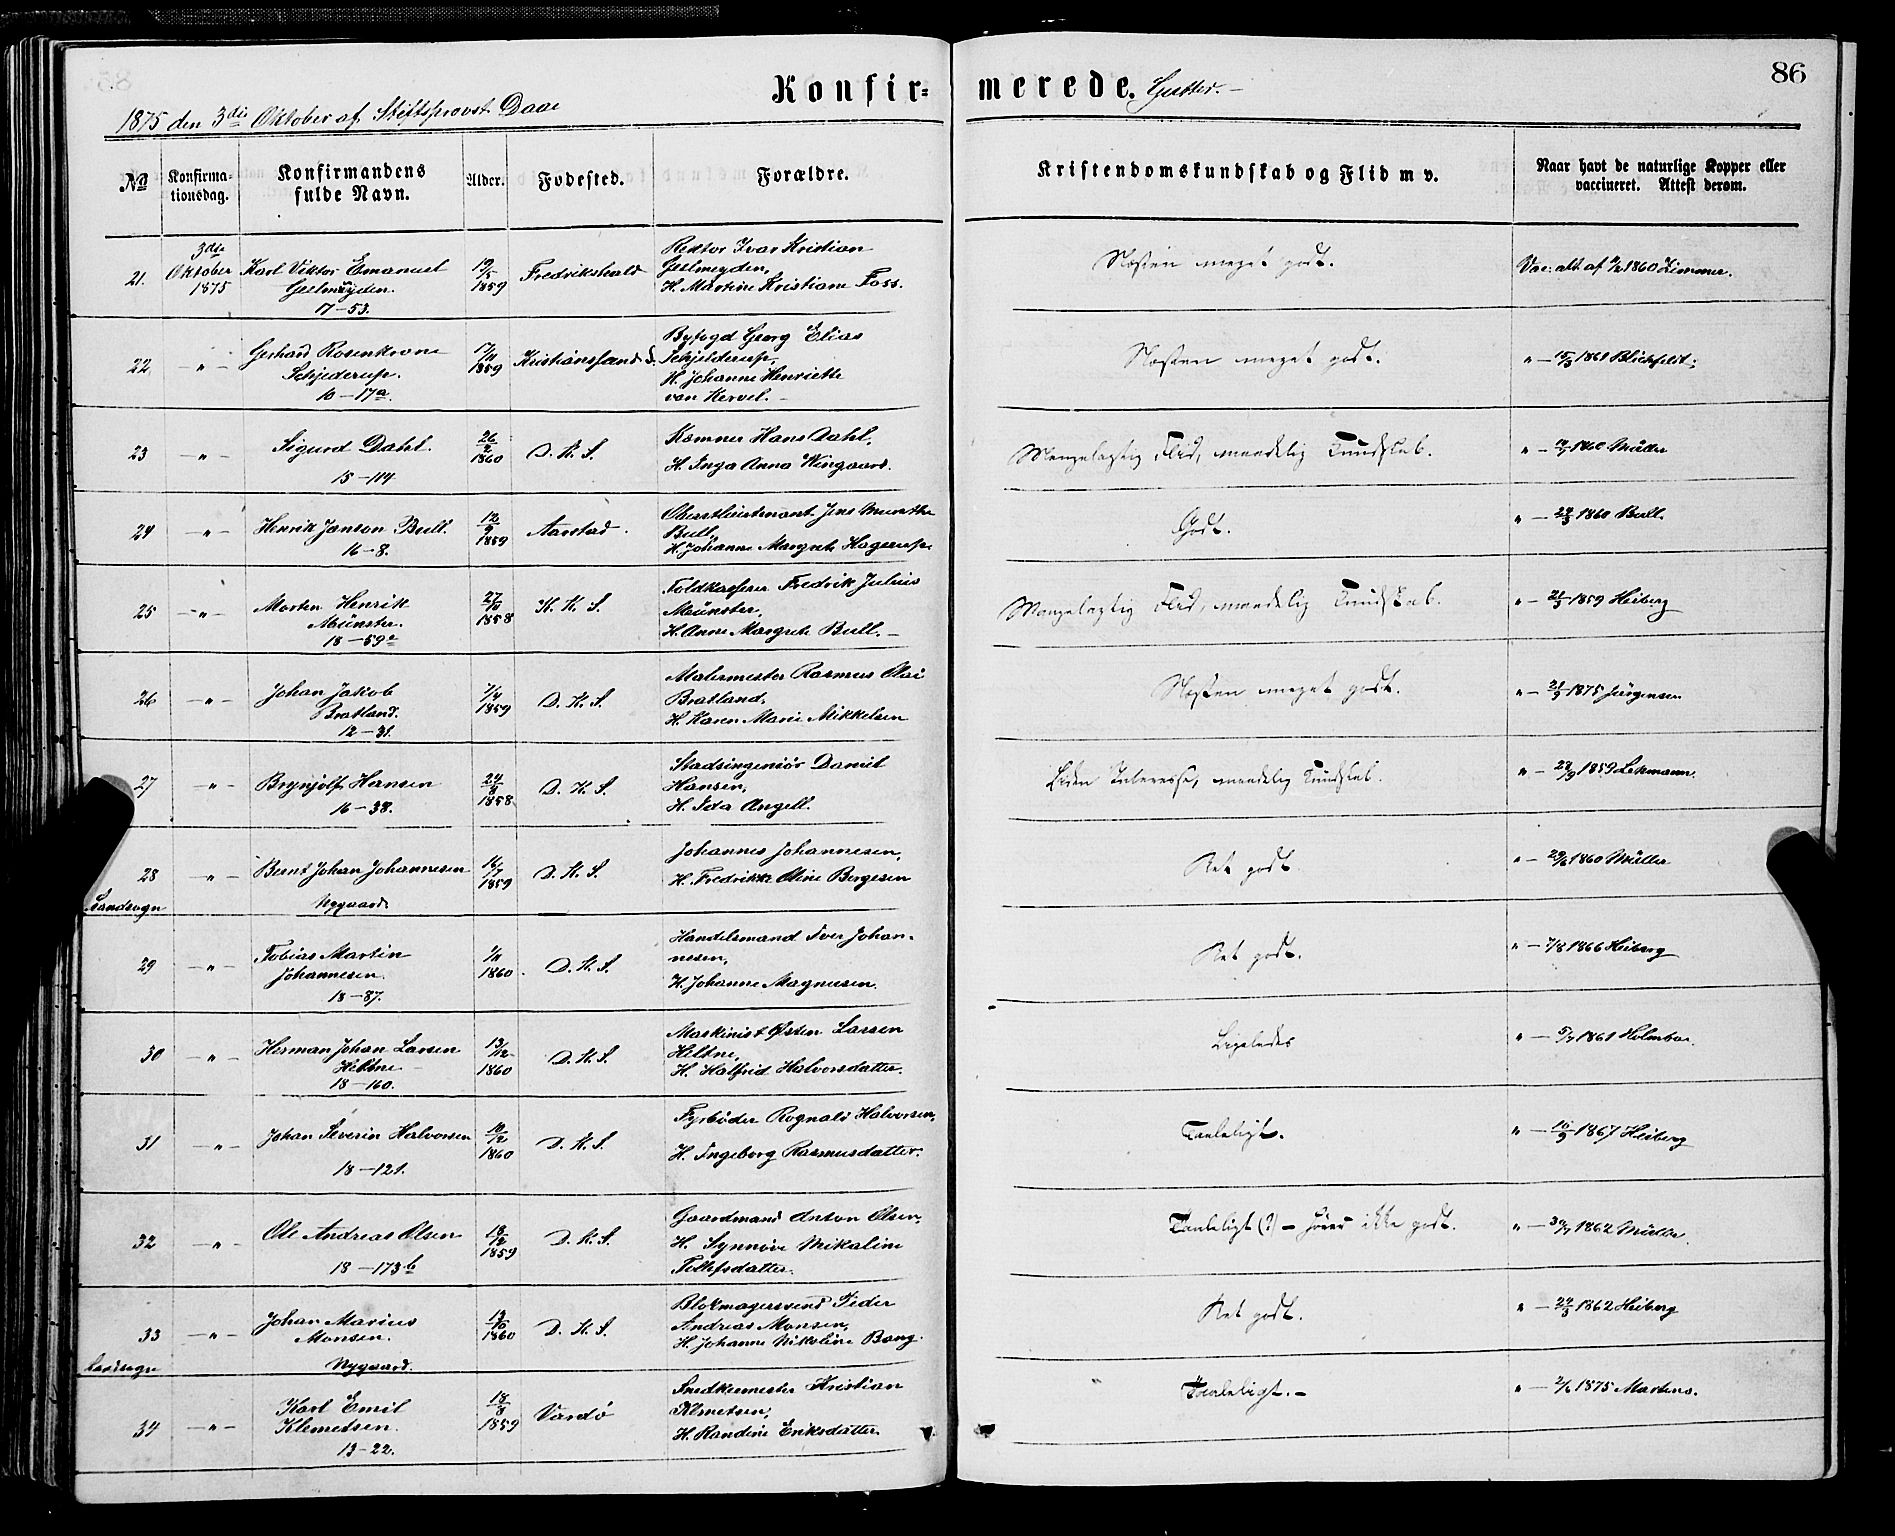 Konfirmerede. Gutter. —
86
1875 den 3die Oktober af Stiftsprovst Daae
No
Konfirmationsdag.
Konfirmandens fulde Navn.
Alder.
Fodested.
Forældre.
Kristendomskundskab og Flid m v.
Naar havt de naturlige Kopper eller vaccineret. Attest derom.
21. 3die Oktober 1875 Karl Viktor Emanuel Geelmuyden. 17-53. 19/5 1859 Fredrikshald Rektor Ivar Kristian Geelmeyden, H. Martine Kristiane Foss. Næsten meget godt. Vac. att. af 1860 Zimmer.
22 -"- Gerhard Rosenkrone Schjederup. 10-17a. 1859 Kristianssand S. Byfogd Georg Elias Schjelderup, H. Johanne Henriette van Kervel. - Næsten meget godt. " - 15/3 1861 Blichfeldt.
23 -"- Sigurd Dahl. 15-114 26/2 1860 D. K. S. Kæmner Hans Dahl, H. Inga Anna Wingaard. Mangelagtig Flid, maadelig Kundskab. " - 1860 Müller
24 -"- Henrik Janson Bull. 16-8. 12/9 1859 Aarstad. Oberstløitenant Jens Munthe Bull, H. Johanne Margrete Hagerup. Godt. " - 1860 Bull.
25 -"- Morten Henrik Münster. 18-59a 27/10 1858 K. K. S. Toldkasserer Fredrik Julius Münster, H. Anne Margrete Bull. - Mangelagtig Flid, maadelig Kundskab. " - 1859 Heiberg
26 -"- Johan Jakob Bratland. 12-31. 7/4 1859 D. K. S. Malermester Rasmus Olai Bratland, H. Karen Marie Mikkelsen Næsten meget godt. " - 21/9 1875 Jürgensen
27 -"- Brynjolf Hansen 16-38. 24/8 1858 D. K. S. Stadsingeniør Daniel Hansen, H. Ida Angell. Liden Interesse, maadelig Kundskab. " - 1859 Lehmann
28 Landsogn -"- Bernt Johan Johannesen Nygaard 16/7 1859 D. K. S. Johannes Johannesen, H. Fredrikke Oline Børgesen Ret godt. " - 29/6 1860 Müller
29 -"- Tobias Martin Johannesen. 18-87. 1860. D. K. S. Handelsmand Iver Johannesen, H. Johanne Magnusen. Ret godt. " - 7/8 1866 Heiberg
30 -"- Herman Johan Larsen Heltne 18-160. 13/12 1860 D. K. S. Maskinist Østen Larsen Heltne, H. Halfrid Halvorsdatter. Ligeledes " - 5/7 1861 Holmboe.
31 -"- Johan Severin Halvorsen 18-121. 10/12 1860 D. K. S. Fyrbøder Rognald Halvorsen, H. Ingeborg Rasmusdatter. Taaleligt. " - 1867 Heiberg
32 -"- Ole Andreas Olsen 18-173b 18/12 1859 D. K. S. Gaardmand Anton Olsen, H. Synnøve Mikaline Tollefsdatter. Taaleligt (?) - hører ikke godt. " - 1862 Müller.
33 Landsogn -"- Johan Marius Monsen. Nygaard. 13/10 1860 D. K. S. Blokmagersvend Peder Andreas Monsen, H. Johanne Nikoline Bang. Ret godt. " - 24/3 1862 Heiberg
34 -"- Karl Emil Klemetsen. 13-22. 18/8 1859 Vardø Snedkermester Kristian Klmetsen, H. Randine Eriksdatter. Taaleligt. - " - 2/6 1875 Martens.